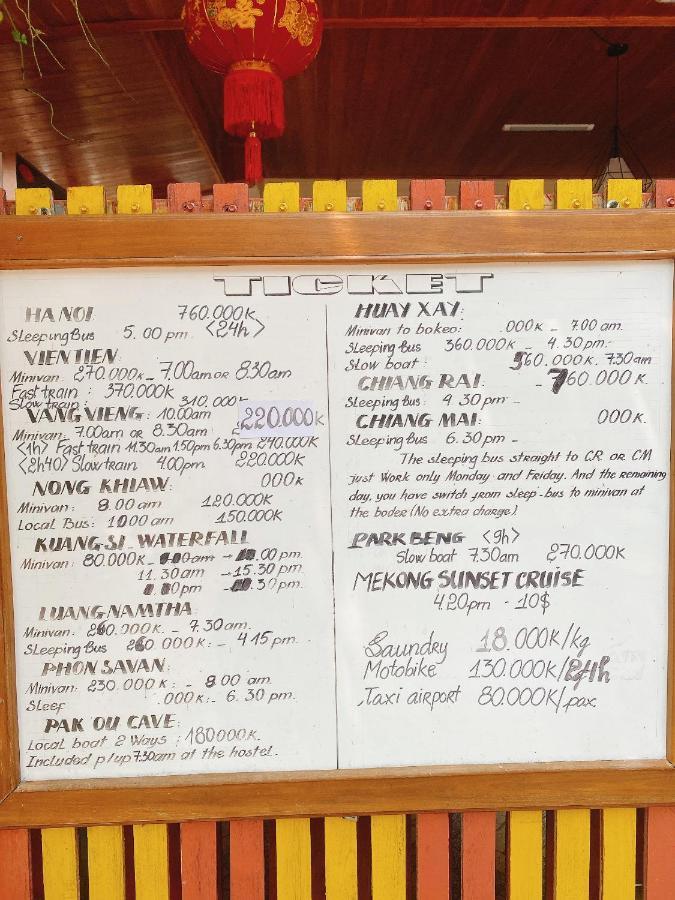 TICKET
HANOI 760.000K
Sleeping Bus 5.00 pm <24h>
VIENTIEN:
Minivan: 270.000K - 7.00am or 8.30am
Fast train : 370.000K
Slow train : 310.000K
VANG VIENG: 10.00am 220.000K
Minivan: 7.00am or 8.30am
<1h> Fast train 11.30am 1.50pm 6.30pm 240.000K
<2h40> Slow train 4.00pm 220.000K
NONG KHIAW: 000K
Minivan: 8.00 am 120.000K
Local Bus: 10.00 am 150.000K
KUANG-SI - WATERFALL
Minivan: 80.000K - .00 pm
11.30am → 15.30 pm
.30 pm
LUANG NAMTHA
Minivan: 260.000K - 7.30 am.
Sleeping Bus 260.000K: - 4.15 pm.
PHON SAVAN:
Minivan: 230.000K: - 8.00 am
Sleep .000K: - 6.30 pm.
PAK OU CAVE:
Local boat 2 Ways : 180000K.
Included p/up 7.30am at the hostel.
HUAY XAY:
Minivan to bokeo: .000K - 7.00 am.
Sleeping Bus 360.000K - 4.30 pm.
Slow boat : 560.000K. 7.30am
CHIANG RAI: - 760.000K
Sleeping Bus: 4.30 pm -
CHIANG MAI: 000K.
Sleeping Bus 6.30pm -
The sleeping bus straight to CR or CM
just Work only Monday and Friday. And the remaining
day, you have switch from sleep-bus to minivan at
the boder (No extra charge)
PARK BENG <9h>
Slow boat 7.30am 270.000K
MEKONG SUNSET CRUISE
4.20pm - 10$
Laundry 18.000K/kg
Motobike 130.000K/24h
Taxi airport 80.000K/pax